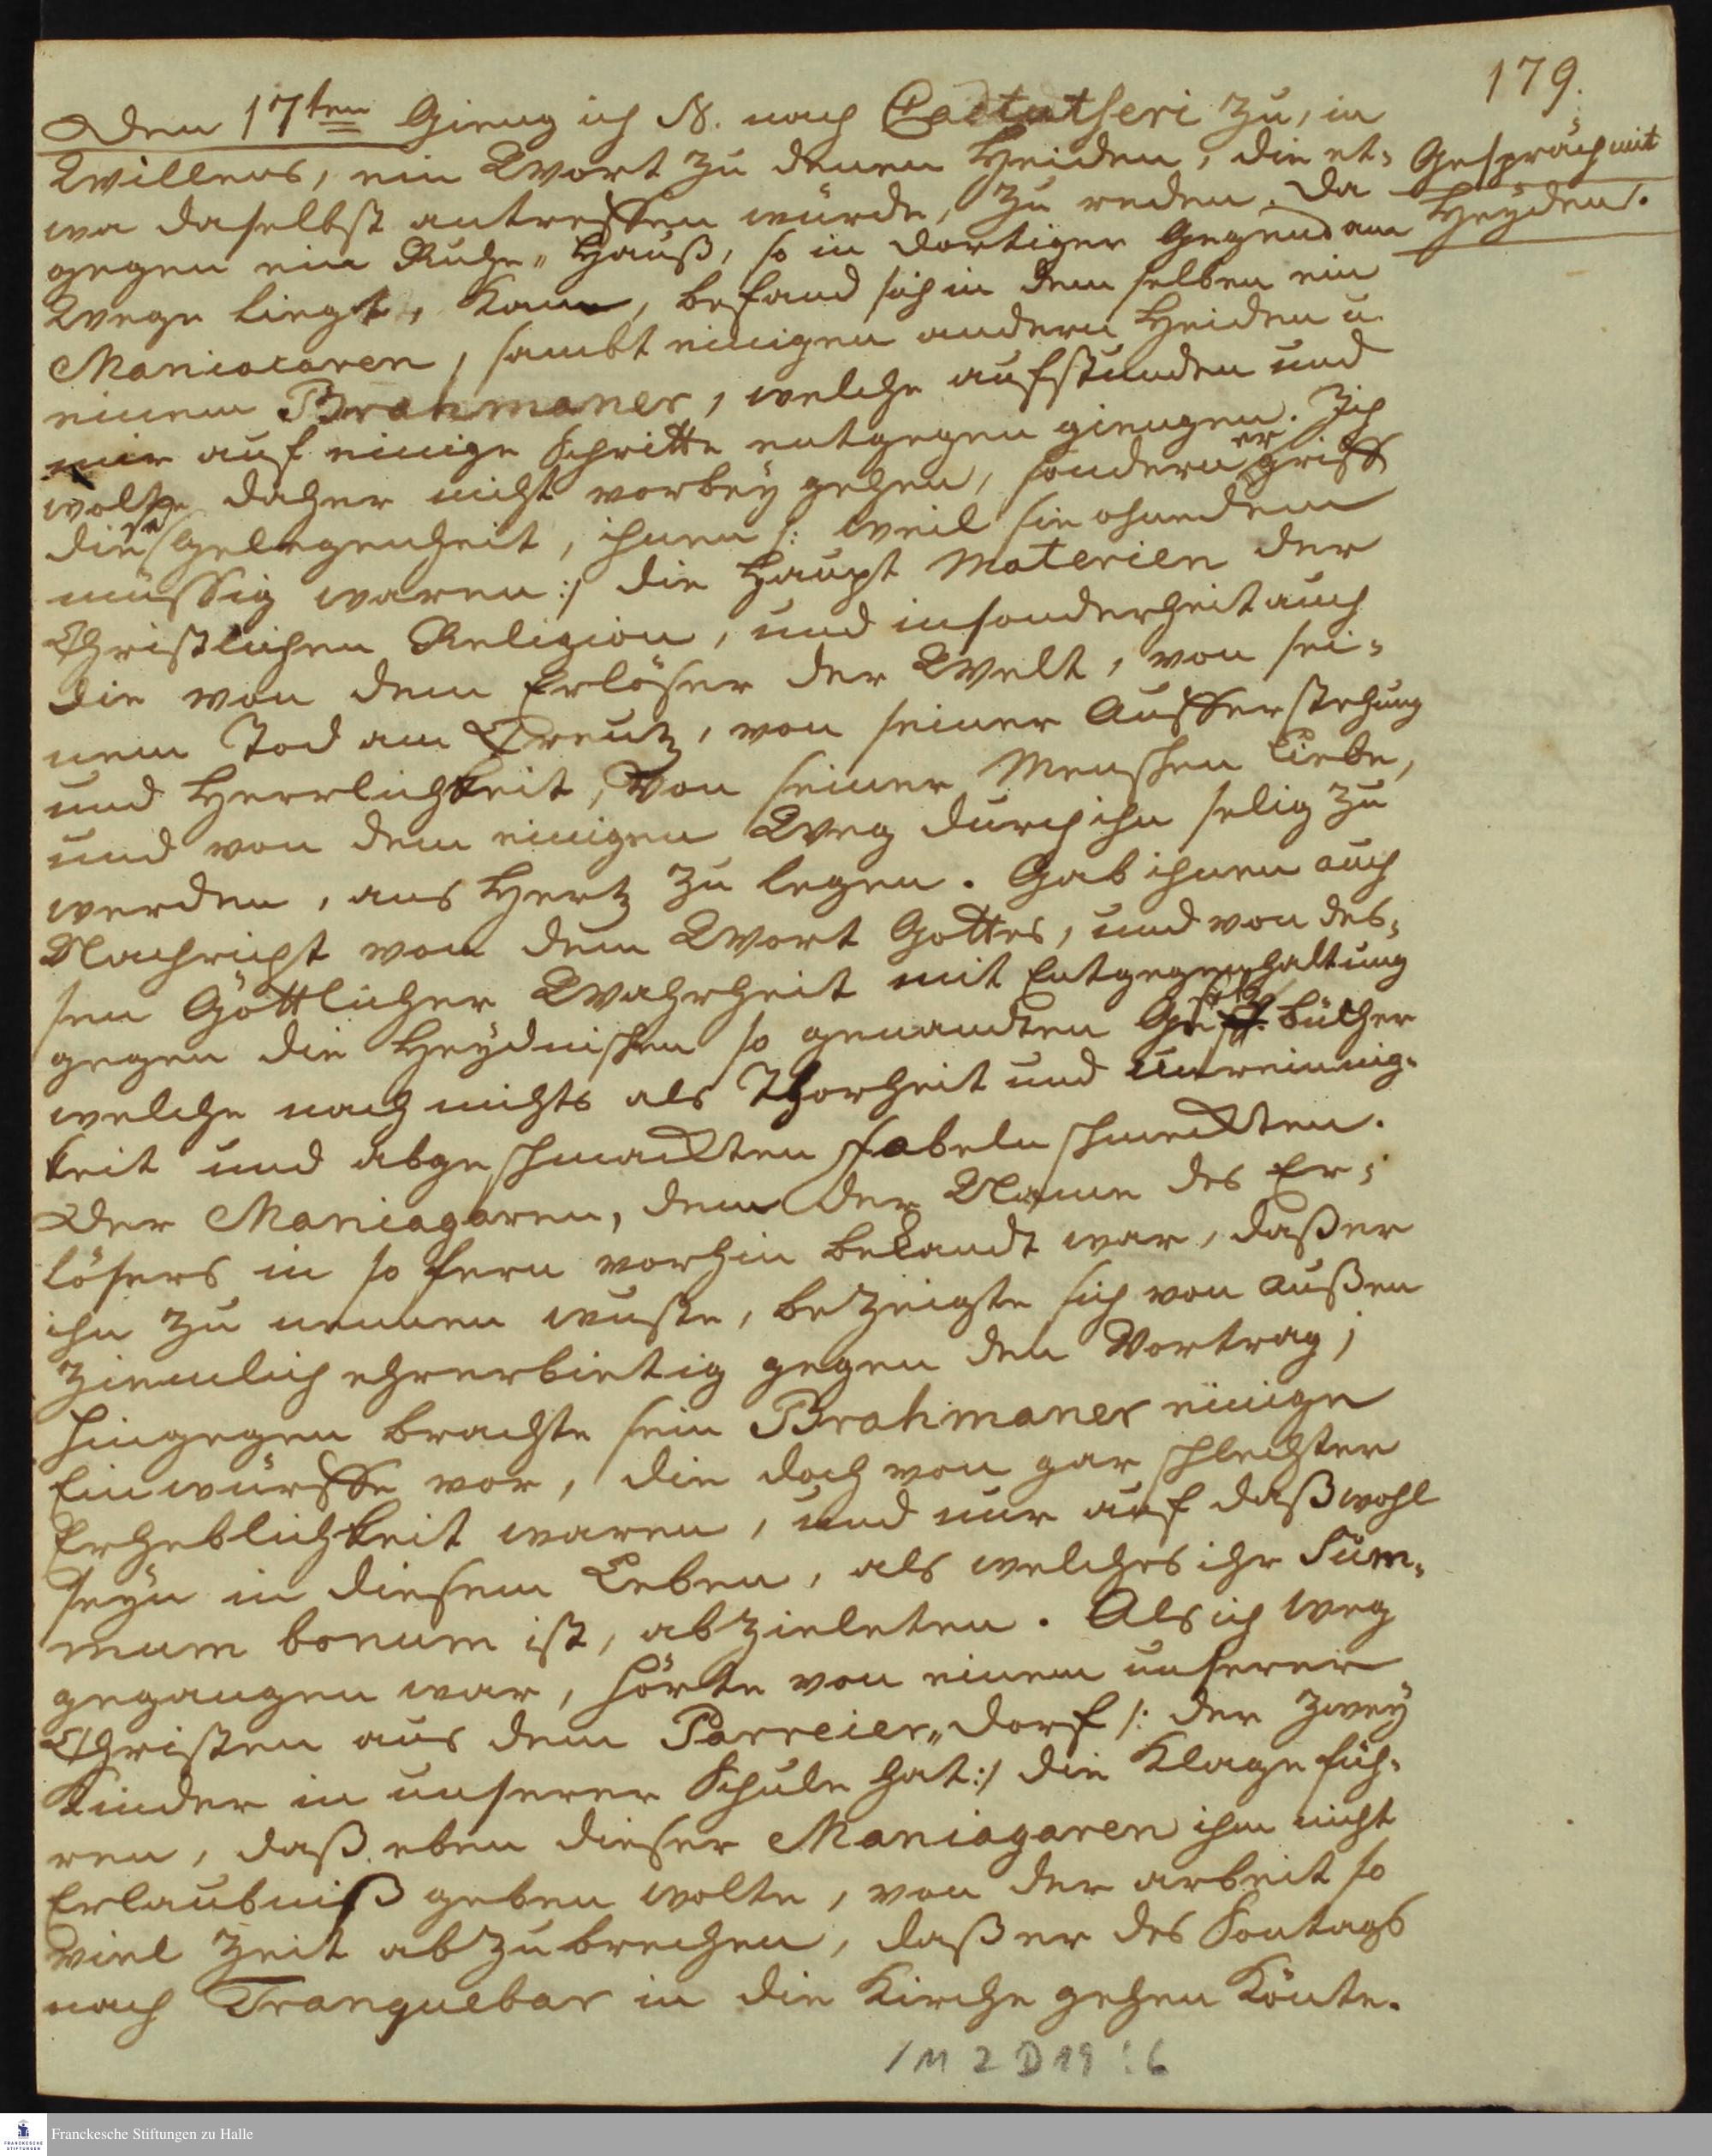 179.
Den 17ten Gieng ich N. nach Cattutſeri zu, in
Willens, ein Wort zu denen Heiden, die et-
wa daselbst antreffen würde, zu reden. Da
gegen ein Ruhe-Hauß, so in dortiger Gegend am
Wege liegt, kam, befand sich in dem selben ein
Maniacaren, sambt einigen andern Heiden u.
einem Brahmaner, welche aufstunden und
mir auf einige Schritte entgegen giengen. Ich
wolte daher nicht vorbey gehen, sondern ergriff
diese Gelegenheit, ihnen /: weil sie ohnedem
müssig waren :/ die Haupt Materien der
Christlichen Religion, und insonderheit auch
die von dem Erlöser der Welt, von sei-
nem Tod am Creutz, von seiner Aufferstehung
und Herrlichkeit, von seiner Menschen Liebe,
und von dem einigen Weg durch ihn selig zu
werden, ans Hertz zu legen. Gab ihnen auch
Nachricht von dem Wort Gottes, und von des-
sen Göttlicher Wahrheit mit Entgegenhaltung
gegen die Heydnischen so genandten Gesetz bücher
welche nach nichts als Thorheit und Unreinig-
keit und abgeschmackten Fabeln schmeckten.
Der Maniagaren, dem der Name des Er-
lösers in so fern vorhin bekandt war, daß er
ihn zu nennen wuste, bezeigte sich von außen
ziemlich ehrerbietig gegen den Vortrag;
hingegen brachte sein Brahmaner einige
Einwürffe vor, die doch von gar schlechter
Erheblichkeit waren, und nur auf daß wohl
seyn in diesem Leben, als welches ihr Sum-
mum bonum ist, abzieleten. Als ich weg
gegangen war, hörte von einem unserer
Christen aus dem Parreier-Dorf /: der zwey
Kinder in unserer Schule hat :/ die Klage füh-
ren, daß eben dieser Maniagaren ihm nicht
Erlaubniß geben wolte, von der arbeit so
viel Zeit abzubrechen, daß er des Sontags
nach Tranquebar in die Kirche gehen könte.
Gespräch mit
Heyden.
1 M 2 D 19 : 6
Franckesche Stiftungen zu Halle
FRANCKESCHE
STIFTUNGEN